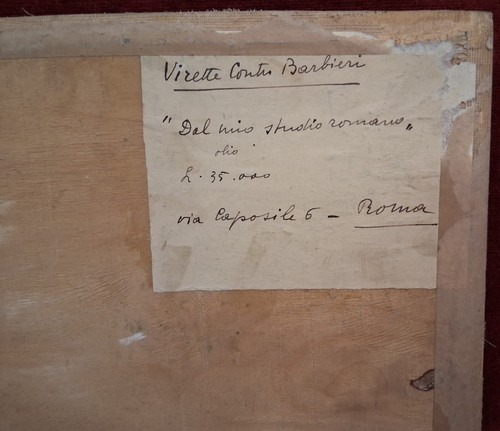 Virette Contu Barbieri
"Dal mio studio romano„
olio
L. 35.000
via Caposile 6 - Roma